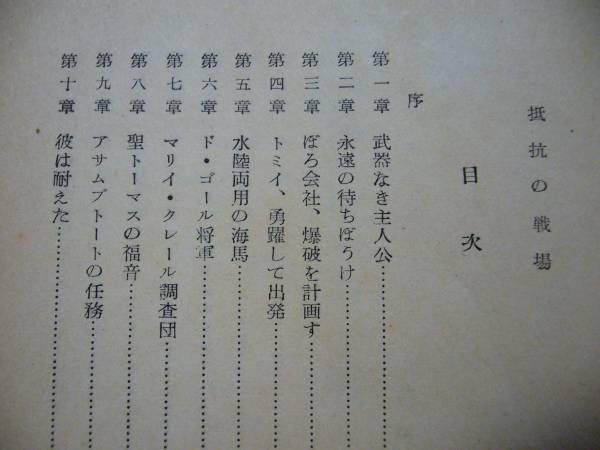 抵抗の戦場
目次
序
第一章 武器なき主人公…………
第二章 永遠の待ちぼうけ…………
第三章 ぼろ会社、爆破を計画す…………
第四章 トミイ、勇躍して出発…………
第五章 水陸両用の海馬…………
第六章 ド・ゴール将軍…………
第七章 マリイ・クレール調査団…………
第八章 聖トーマスの福音…………
第九章 アサムプトートの任務…………
第十章 彼は耐えた…………